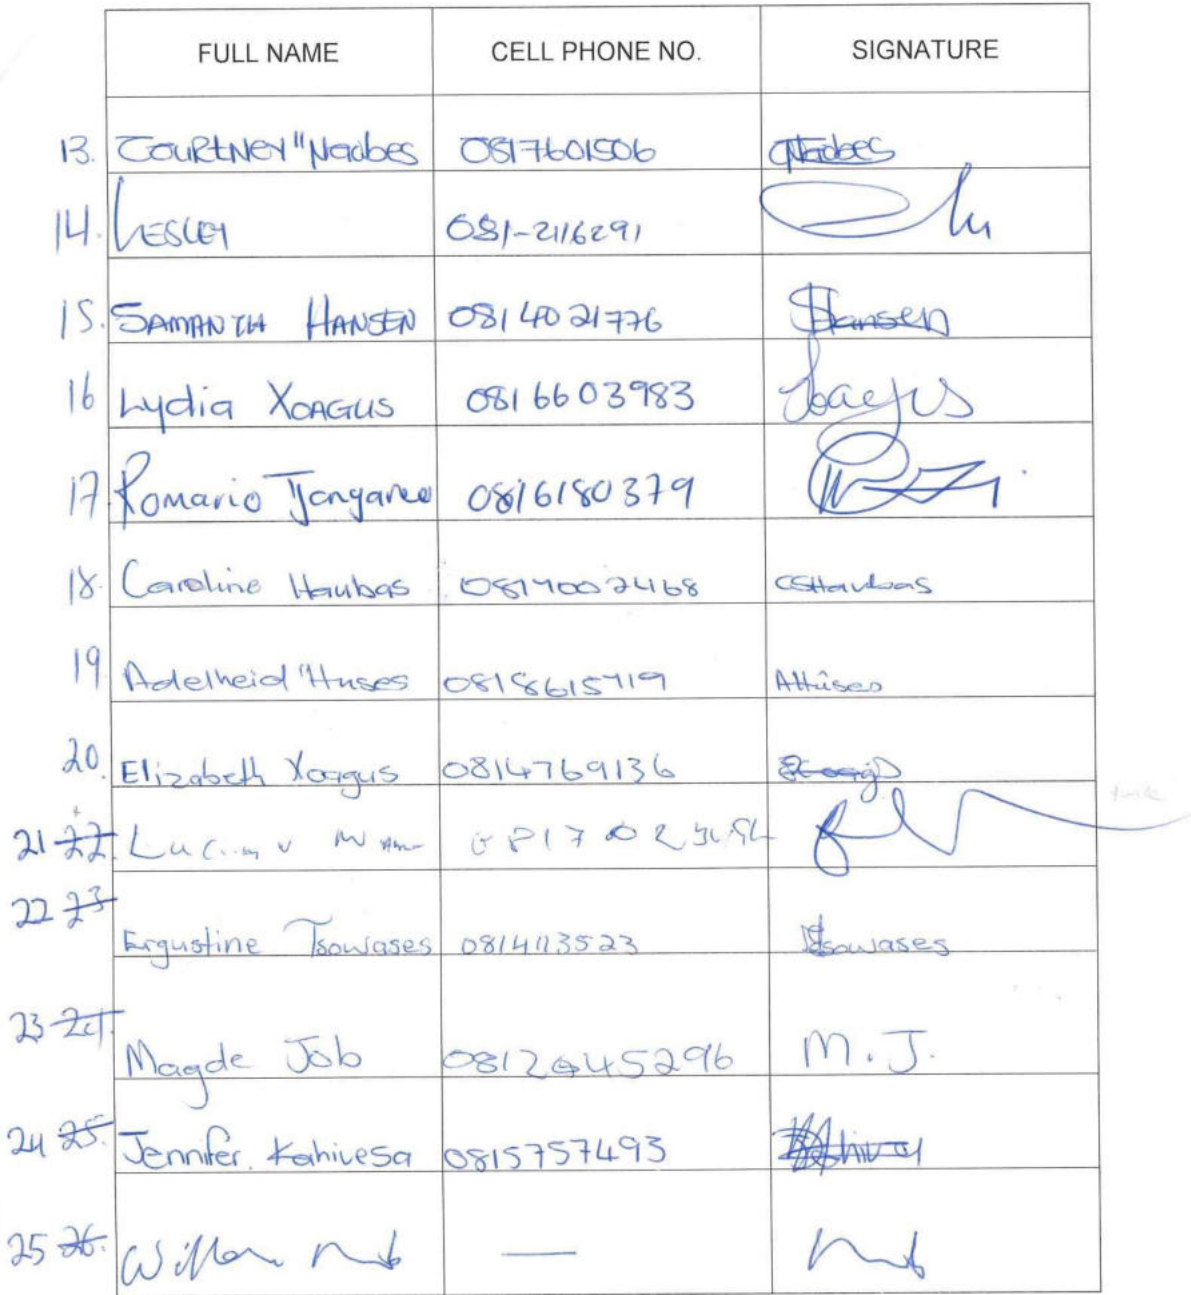 FULL NAME CELL PHONE NO. SIGNATURE
13. COURTNEY "Naobes 0817601506 Naobes
14. LESLEY 081-2116291
15. SAMANTH HANSEN 0814021776 Hansen
16 Lydia XOAGUS 0816603983
17 Romario Tjongarero 0816180379
18. Caroline Haubas 0814002468 CSHaubas
19 Adelheid "Huses 0818615719 AHuses
20. Elizabeth Xoagus 0814769136
21 22.
22 23 Ergustine Tsowases 0814113523 Tsowases
23 24. Magde Job M.J.
24 25. Jennifer. Kahivesa 0815757493
25 26. —